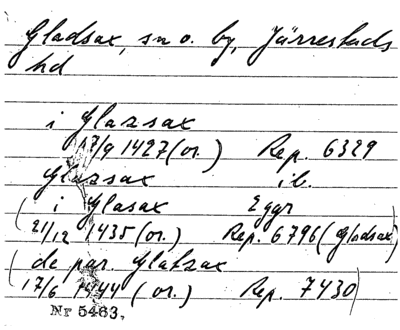 Gladsax, sn o. by, Järrestads
hd
i Glazsax
17/9 1427 (or.) Rep. 6329
Glazsax ib.
(i Glasax Eggr
21/12 1435 (or.) Rep. 6796 (Glodsax)
(de par. Glatzax
17/6 1444 (or.) Rep. 7430)
Nr 5463.